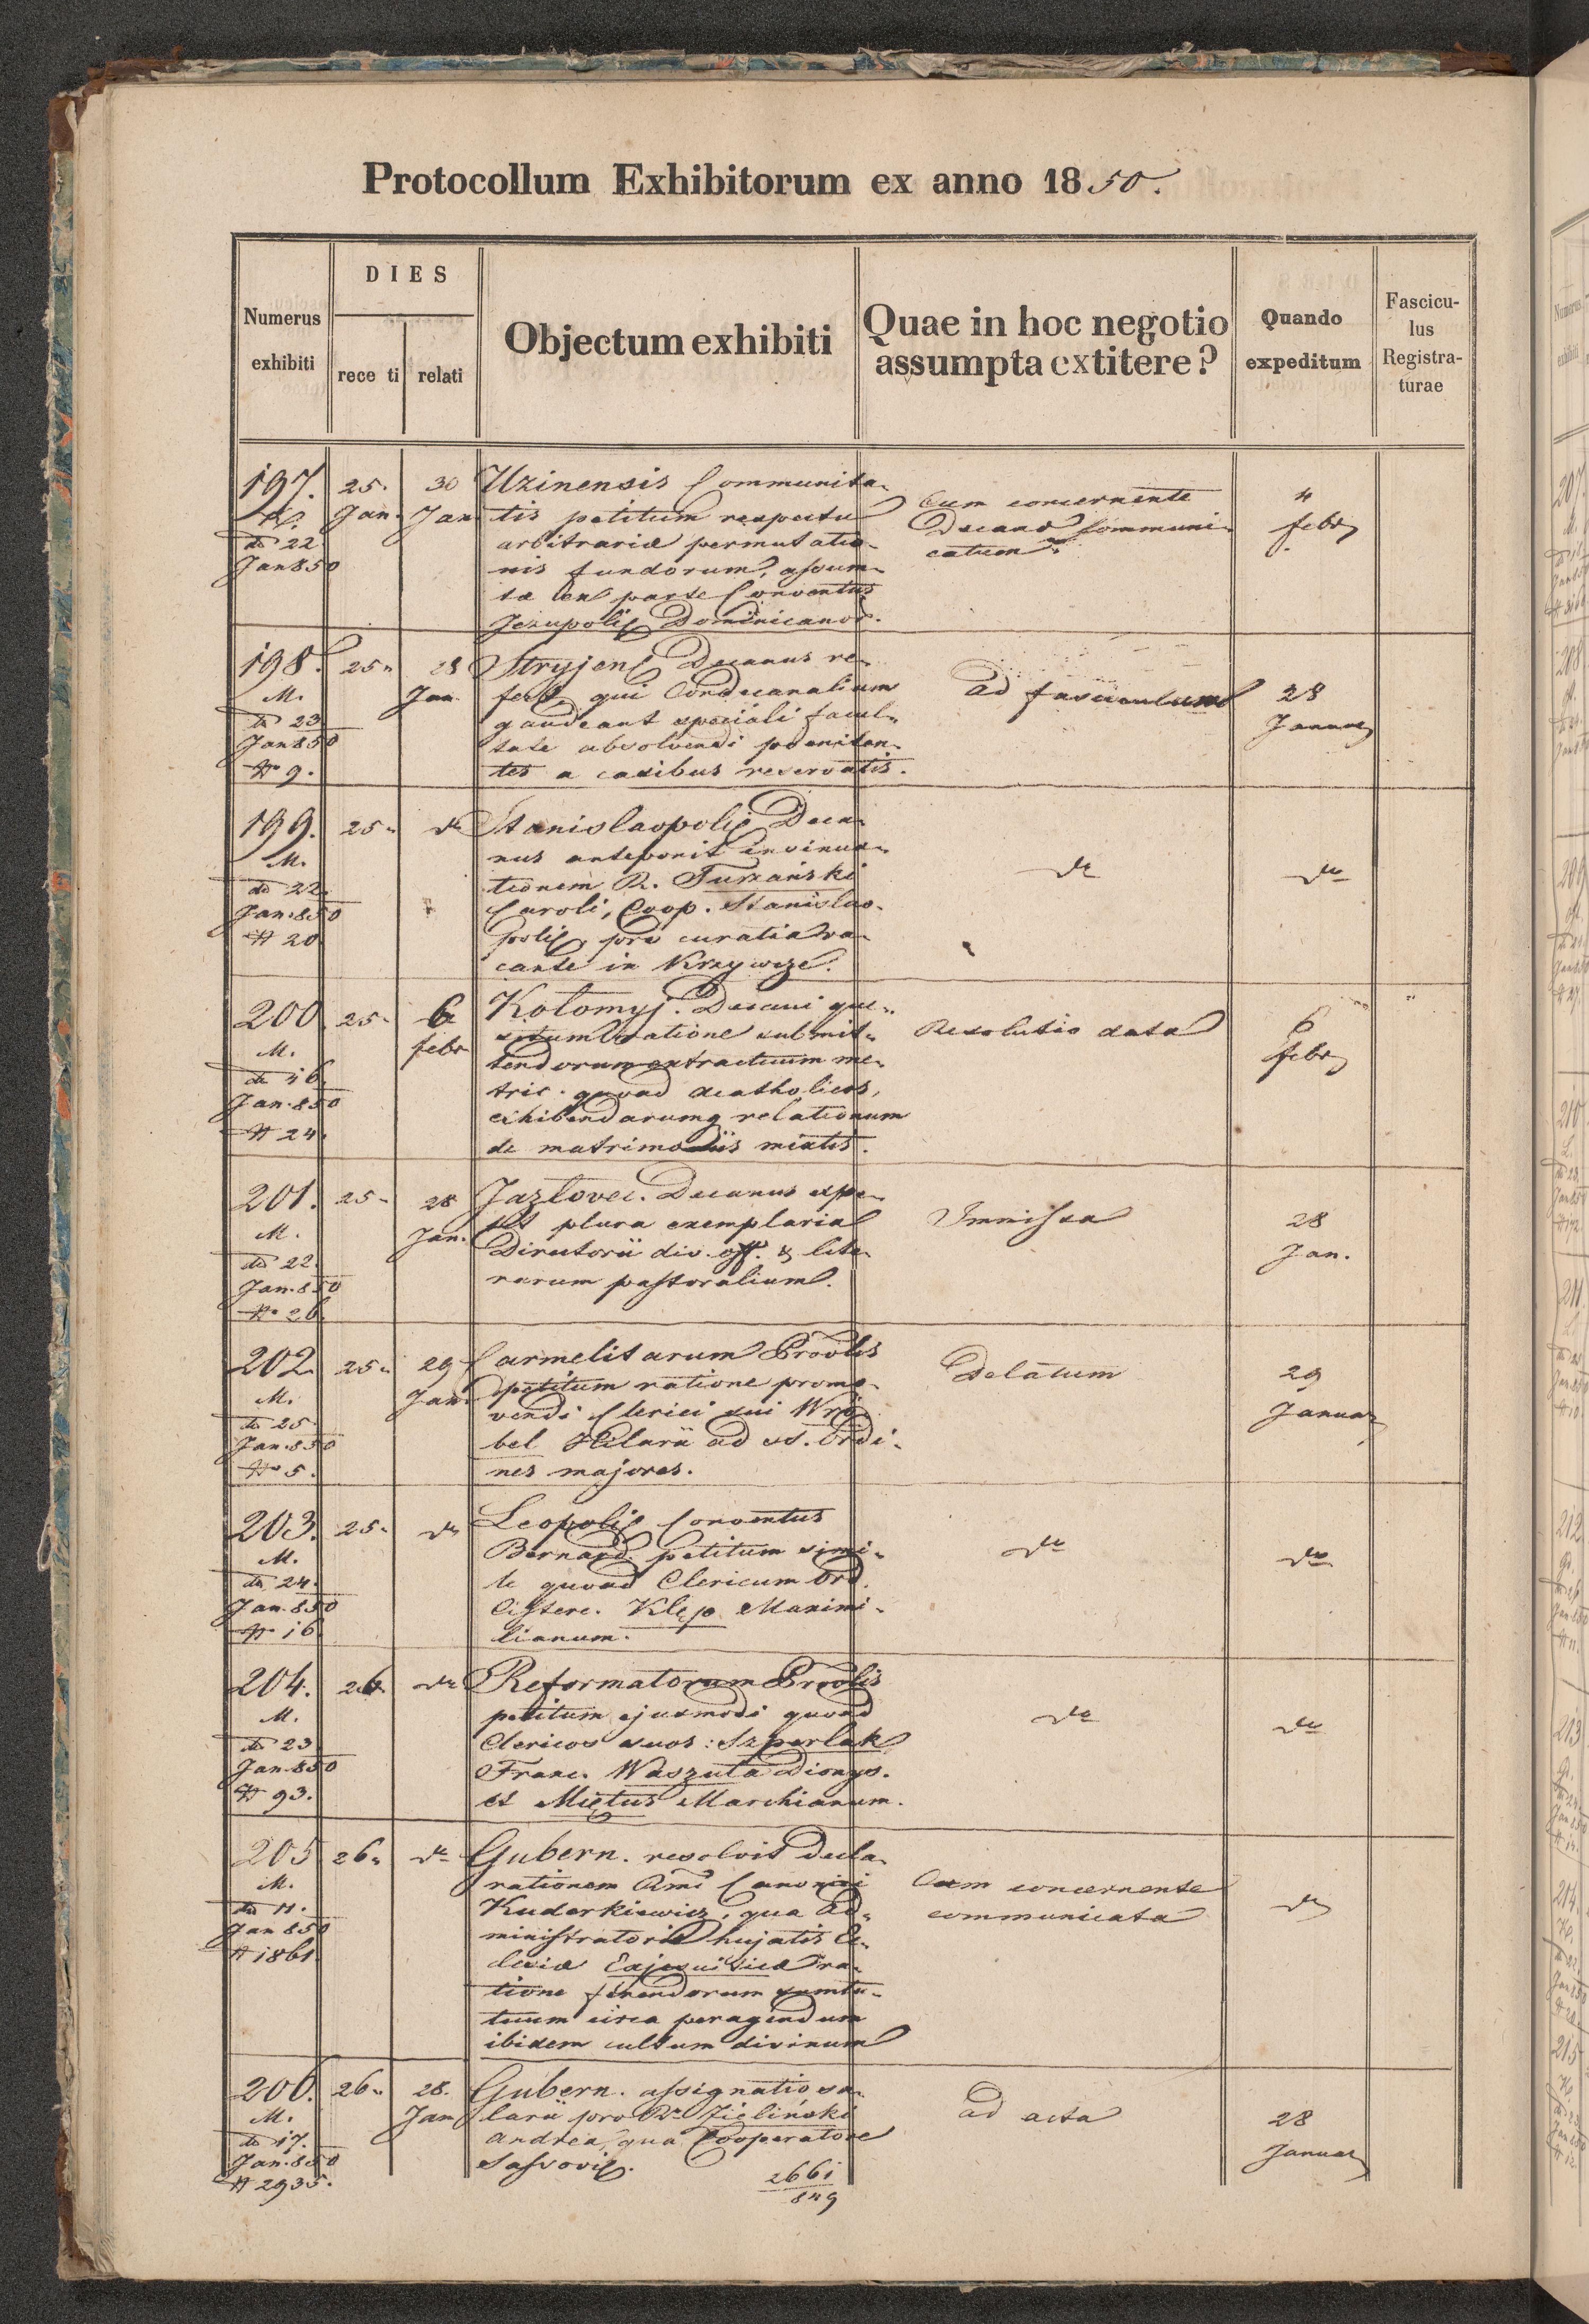 Protocollum Exhibitorum ex anno 1850.
Numerus exhibiti
DIES
rece ti
relati
Objectum exhibiti
Quae in hoc negotio assumpta extitere?
Quando expeditum
Fascicu-
lus
Registra-
turae
197.
dto 22
Jan 850
25.
Jan.
30
Jan
Uzinensis Communita-
tis petitum respectu
arbitrariæ permutatio-
nis fundorum, assum-
tæ ex parte Conventus
Jezupolis Dominicanor.
Cum concernente
Decano communi-
catum.
4
febr
198.
M.
dto 23
Jan 850
N 9.
25 "
28
Jan.
Stryjens Decanus re-
fert, qui Condecanalium
gaudeant speciali facul-
tate absolvendi pœniten-
tes a casibus reservatis.
ad fasciculum
28
Januar
199.
M.
dto 22
Jan. 850
N 20
25 "
dto
Stanislaopolis Deca-
nus anteponit insinua-
tionem R. Turzański
Caroli, Coop. Stanislao-
polis, pro curatia va-
cante in Krzywcze.
dto
dto
200
M.
dto 16
Jan. 850
N 24.
25 "
6
febr
Kołomyj. Decani quæ-
situm ratione submit-
tendorum extractuum me-
tric. quoad acatholicos,
exhibendarumq relationum
de matrimoniis mixtis.
Resolutio data
6
febr
201.
M.
dto 22
Jan. 850
N 26
25 "
28
Jan.
Jazlovec. Decanus expe-
tit plura exemplaria
Directorii div. off. & lite-
rarum pastoralium.
Immissa
28
Jan.
202.
M.
dto 25
Jan. 850
N 5.
25 "
29
Jan.
Carmelitarum Provlis
petitum ratione promo-
vendi Clerici sui Wró-
bel Hilarii ad ss. ordi-
nes majores.
Delatum
29
Januar
203.
M.
dto 24.
Jan. 850
N 16
25 "
dto
Leopolis Conventus
Bernard. petitum simi-
le quoad Clericum Ord.
Cisterc. Klęp Maximi-
lianum.
dto
dto
204.
M.
dto 23
Jan. 850
N 93.
26.
dto
Reformatorum Provlis
petitum ejusmodi quoad
Clericos suos: Szperlak
Franc. Waszuta Dionys.
et Miętus Marchianum.
dto
dto
205
M.
dto 11.
Jan 850
N 1861.
26 "
dto
Gubern. resolvit decla-
rationem Rmi Canonici
Kuderkiewicz, qua Ad-
ministratoris hujatis Ec-
clesiæ Exjesuiticæ ra-
tione ferendorum sumtu-
tuum circa peragendum
ibidem cultum divinum
Cum concernente
communicata
dto
206.
M.
dto 17.
Jan. 850
N 2935.
26 "
28.
Jan
Gubern. assignatio sa-
larii pro Rdo Zieliński
Andrea, qua Cooperatore
Sassovis.
ad acta
28
Januar
2661
849